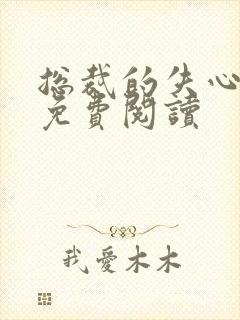 总裁的失心
免費閱讀
我愛木木